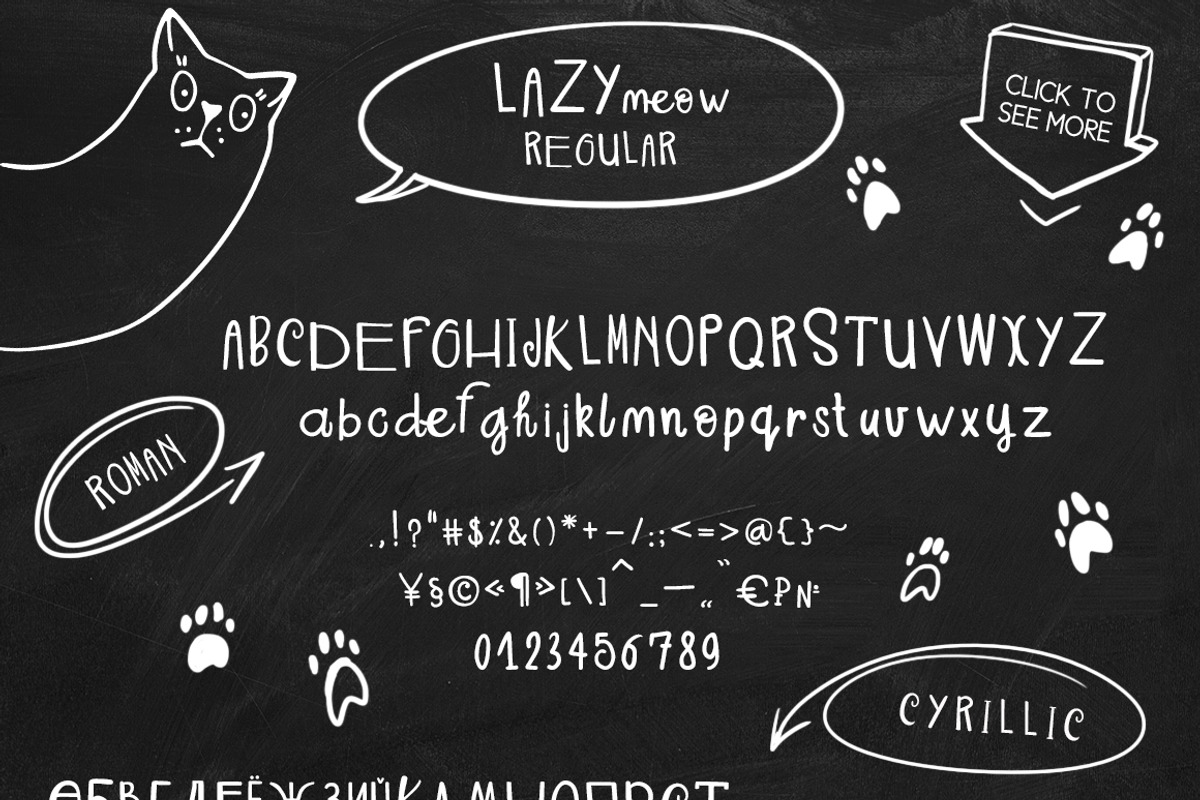 LAZY meow
REGULAR
CLICK TO
SEE MORE
ABCDEFGHIJKLMNOPQRSTUVWXYZ
abcdefghijklmnopqrstuvwxyz
ROMAN
.,!?"#$%&()*+-/:;<=>@{}~
¥§©«¶»[\]^_—„“€₽№
0123456789
CYRILLIC